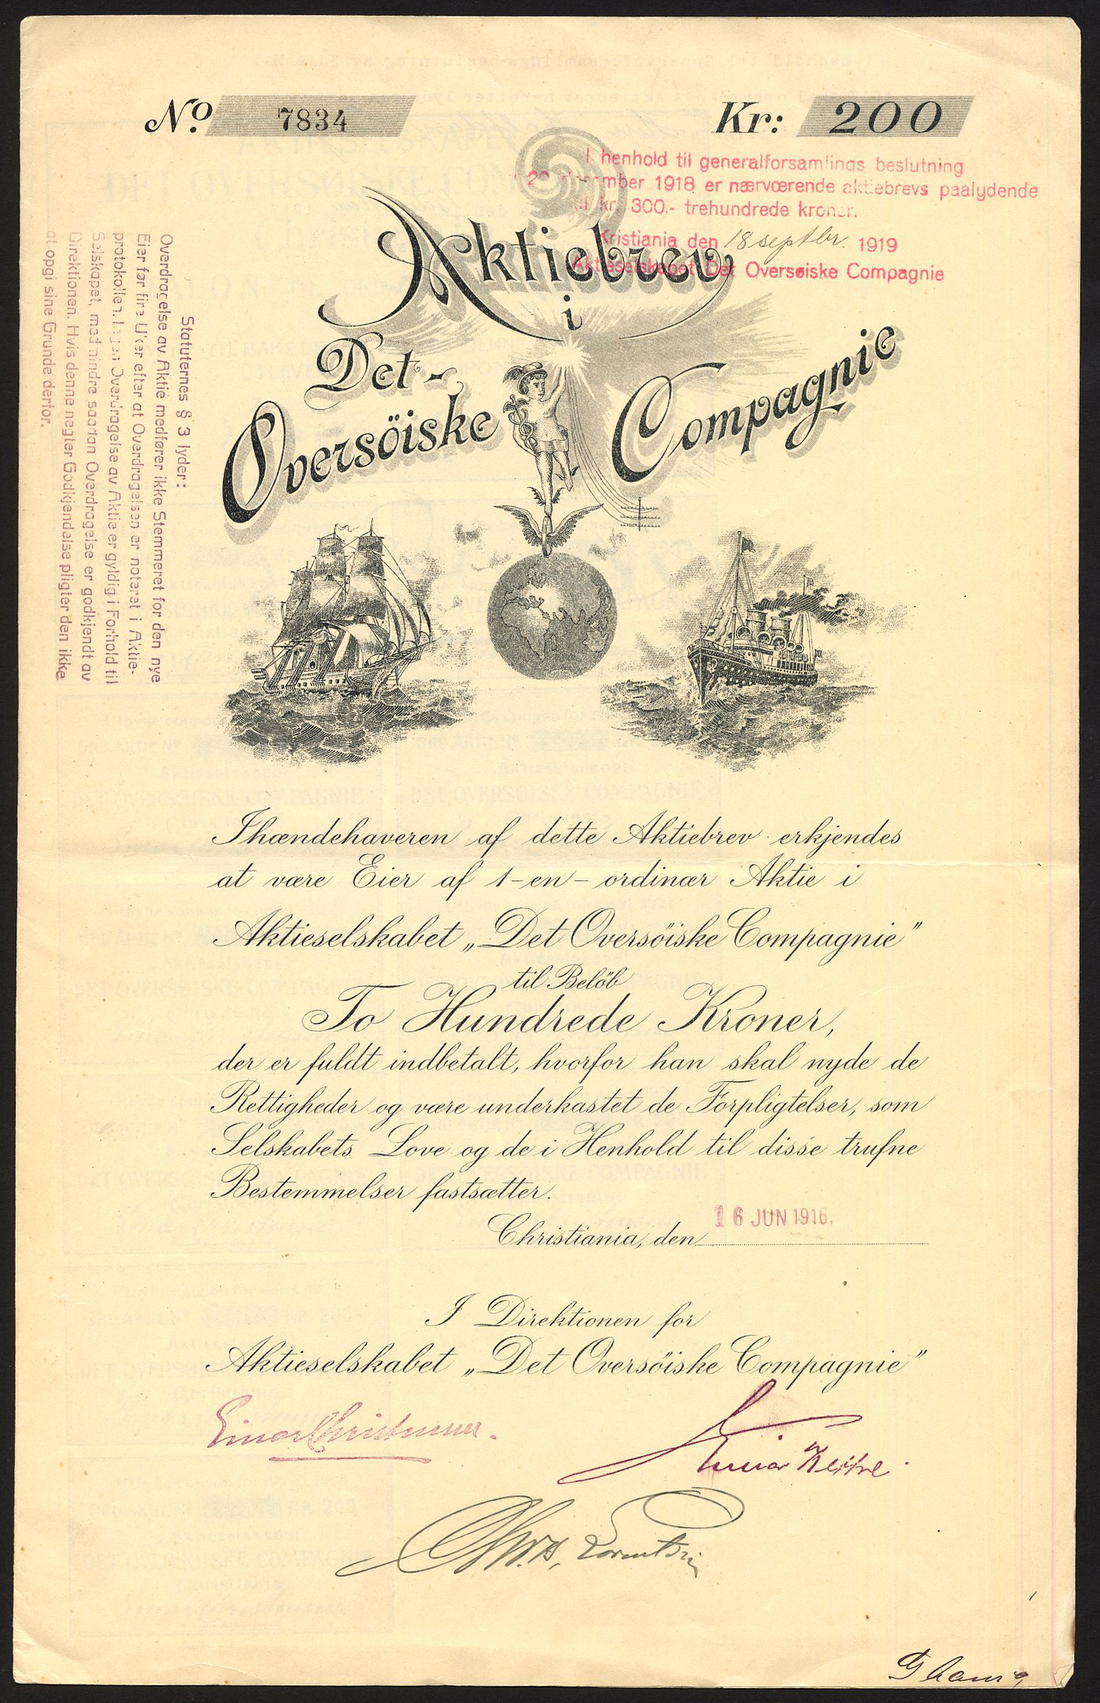 No. 7834
Kr: 200
I henhold til generalforsamlings beslutning
1918 er nærværende aktiebrevs paalydende
kr. 300.- trehundrede kroner.
Kristiania den 18 septbr. 1919
Aktieselskabet Det Oversøiske Compagnie
Aktiebrev
i
Det
Oversöiske Compagnie
Statuternes § 3 lyder:
Overdragelse av Aktie medfører ikke Stemmeret for den nye
Eier før fire Uker efter at Overdragelsen er noteret i Aktie-
protokollen. Ingen Overdragelse av Aktie er gyldig i Forhold til
Selskapet, medmindre saadan Overdragelse er godkjendt av
Direktionen. Hvis denne negter Godkjendelse pligter den ikke
at opgi sine Grunde derfor.
Ihændehaveren af dette Aktiebrev erkjendes
at være Eier af 1-en- ordinær Aktie i
Aktieselskabet „Det Oversöiske Compagnie"
til Belöb
To Hundrede Kroner,
der er fuldt indbetalt, hvorfor han skal nyde de
Rettigheder og være underkastet de Forpligtelser, som
Selskabets Love og de i Henhold til disse trufne
Bestemmelser fastsætter.
Christiania, den 16 JUN 1916.
I Direktionen for
Aktieselskabet „Det Oversöiske Compagnie"
Einar Christensen.
Chr. A. Lorentzen